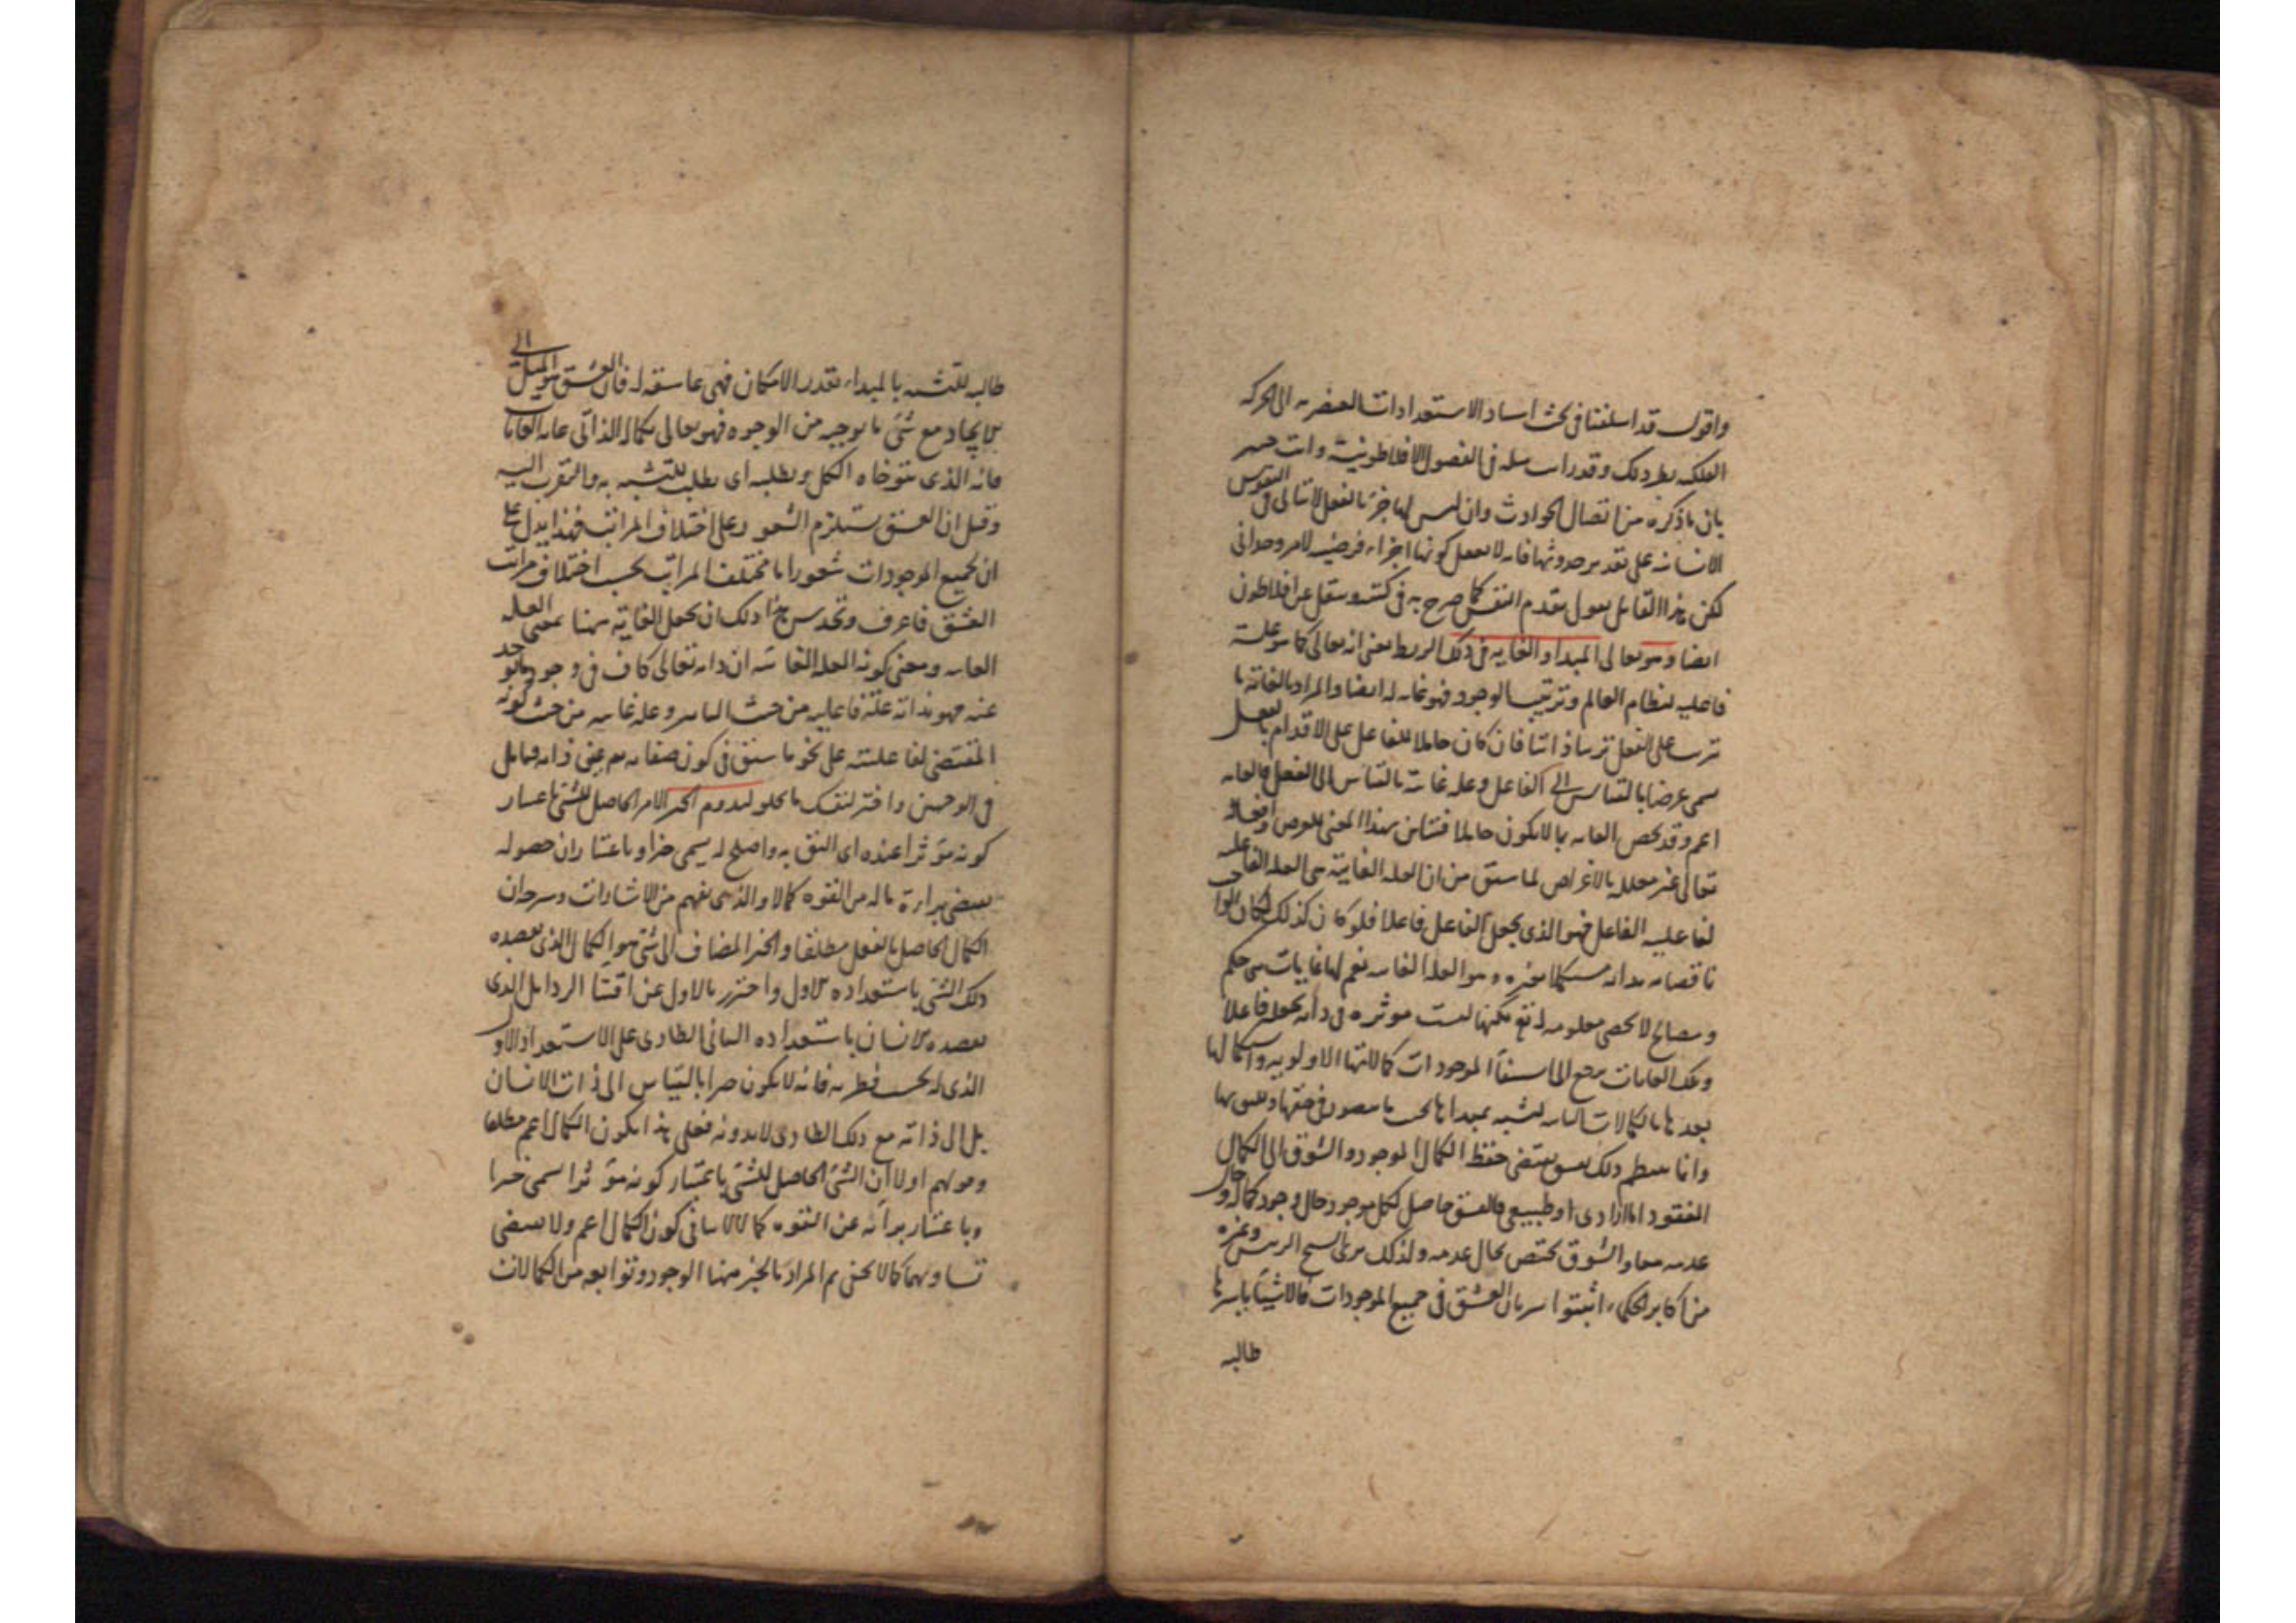 واقول قد اسلفنا فى بحث اسناد الاستعدادات العنصريه الى الحركه
الفلكيه بطر ذلك وقد فى الفصول الافلاطونية وانت خبير
بان ما ذكره من اتصال الحوادث وان ليس لها جزء بالفعل لا يتاتى فى النفوس
الانسانيه على تقدير حدوثها فانه لا يعقل كونها اجزاء فرضيه لامر وحدانى
لكن هذا القائل يقول بقدم النفس كما صرح به فى كتبه وينقل عن افلاطون
ايضا وهو تعالى المبداء والغايه فى ذلك الربط يعنى انه تعالى كما هو علة
فاعليه لنظام العالم وترتيب الوجود فهو غايه له ايضا والمراد بالغاية ما
يترتب على الفعل ترتبا ذاتيا فان كان حاملا للفاعل على الاقدام بالفعل
يسمى غرضا بالقياس الى الفاعل وعله غائية بالقياس الى الفعل فالغايه
اعم وقد يخص الغايه بما لا يكون حاملا فتباين بهذا المعنى الغرض وافعاله
تعالى غير معلله بالاغراض لما سبق من ان العله الغايية هى العله الفاعليه
لفاعليه الفاعل فهو الذى يجعل الفاعل فاعلا فلو كان كذلك لكان الواجب
ناقصا بذاته مستكملا بغيره وهو العله الغاييه نعم لها غايات هى حكم
ومصالح لا تحصى معلومه له تع لكنها ليست موثره فى ذاته بجعله فاعلا
وتلك الغايات يرجع الى الموجودات كمالاتها الاولويه واكمالها
بعدها بالكمالات الثانيه لتشبه بمبداها بحسب ما يتصور فى حقها ويليق بها
وانما ينتظم ذلك بعشق يقتضى حفظ الكمال الموجود والشوق الى الكمال
المفقود اما ارادى او طبيعى فالعشق حاصل لكل موجود حال وجود كماله وحال
عدمه معا والشوق يختص بحال عدمه ولذلك ترى الشيخ الرئيس وغيره
من اكابر الحكماء اثبتوا سريان العشق فى جميع الموجودات فالاشياء باسرها
طالبه
طالبه للتشبه بالمبداء بقدر الامكان فهى عاشقه له فان العشق هو الميل الى
الاتحاد مع شئ ما بوجه من الوجوه فهو تعالى بكماله الذاتى غايه الغايات
فانه الذى يتوخاه الكل ويطلبه اى يطلب للتشبه به والتقرب اليه
وقيل ان العشق يستلزم الشعور على اختلاف المراتب فهذا يدل على
ان لجميع الموجودات شعورا ما مختلف المراتب بحسب اختلاف مراتب
العشق فاعرف وتحدس هذا ذلك ان تجعل الغاية ههنا بمعنى العله
الغاييه ومعنى كونه العله الغائيه ان ذاته تعالى كاف فى وجود ما يوجد
عنه فهو بذاته علة فاعليه من حيث التاثير وعله غاييه من حيث كونه
المقتضى لفاعليته على نحو ما سبق فى كون صفاته تع عين ذاته فتامل
فى الوجهين واختر لنفسك ما يحلو لتدوم الخير الامر الحاصل للشئ باعتبار
كونه موثرا عنده اى اليق به واصلح له يسمى خيرا وباعتبار ان حصوله
يقتضى براءة ما له من القوه كمالا والذى يفهم من الاشارات وشرحه ان
الكمال الحاصل بالفعل مطلقا والخير المضاف الى شئ هو الكمال الذى يقصده
ذلك الشئ باستعداده الاول واحترز بالاول عن اقتناء الرذايل الذى
يقصده الانسان باستعداده الثانى الطارى على الاستعداد الاول
الذى له بحسب فطرته فانه لا يكون خيرا بالقياس الى ذات الانسان
بل الى ذاته مع ذلك الطارى لا بدونه فعلى هذا يكون الكمال اعم مطلقا
وقولهم اولا ان الشئ الحاصل للشئ باعتبار كونه موثرا يسمى خيرا
وباعتبار براءته عن القوه كمالا لا ينافى كون الكمال اعم ولا يقتضى
تساويهما كما لا يخفى ثم المراد بالخير ههنا الوجود وتوابعه من الكمالات